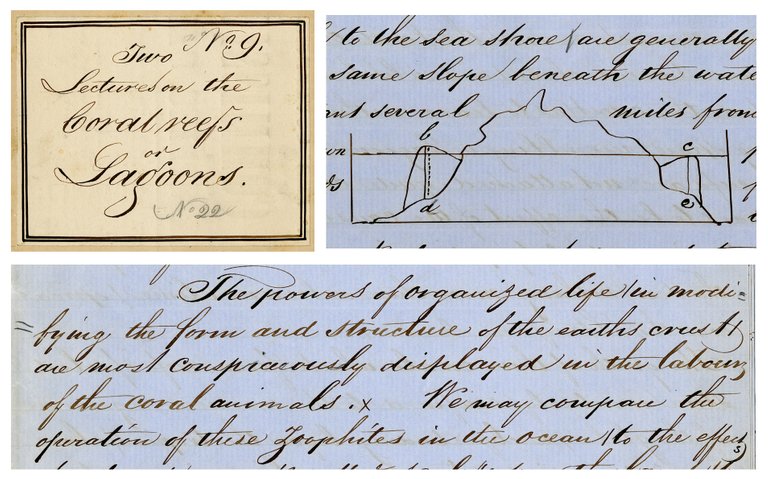 No. 9.
Two
Lectures on the
Coral reefs
or
Lagoons.
No 22
to the sea shore are generally
same slope beneath the wate
several miles from
b c
d e
The powers of organized life (in modi=
fying the form and structure of the earths crust)
are most conspicuously displayed in the labours
of the coral animals. x We may compare the
operation of these Zoophites in the ocean (to the effects